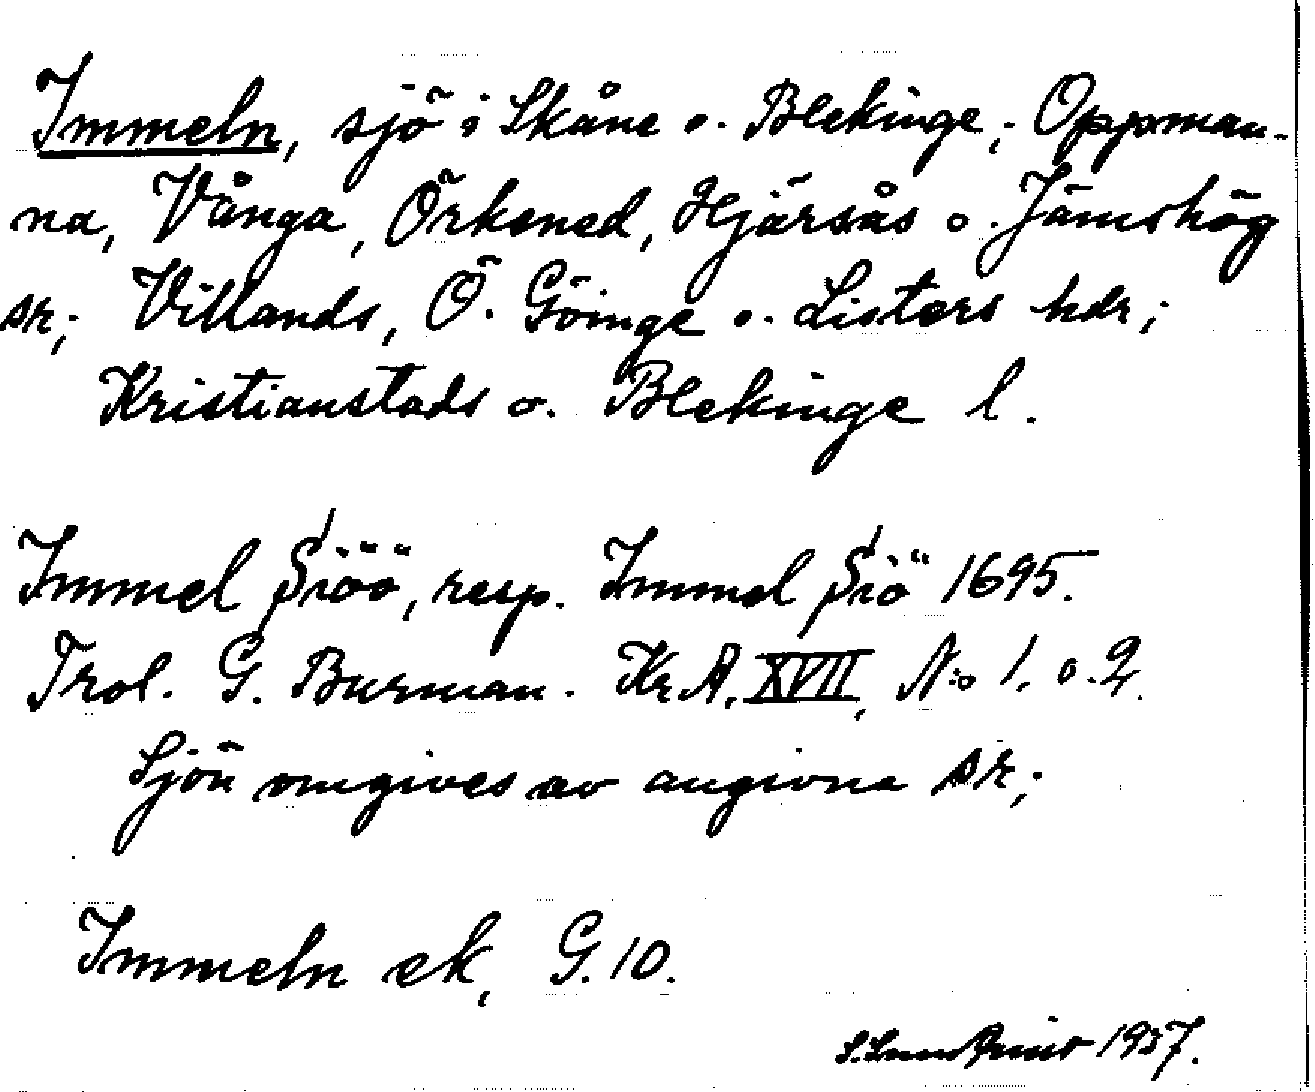 Immeln, sjö i Skåne o. Blekinge; Oppman-
na, Vånga, Örkened, Hjärsås o. Jämshög
sr; Villands, Ö. Göinge o. Listers hdr;
Kristianstads o. Blekinge l.
Immel Siöö, resp. Immel Siö 1695.
Trol. G. Burman. Kr.A. XVII, N:o 1. o. 2.
Sjön omgives av angivna sr;
Immeln ek, G. 10.
1937.